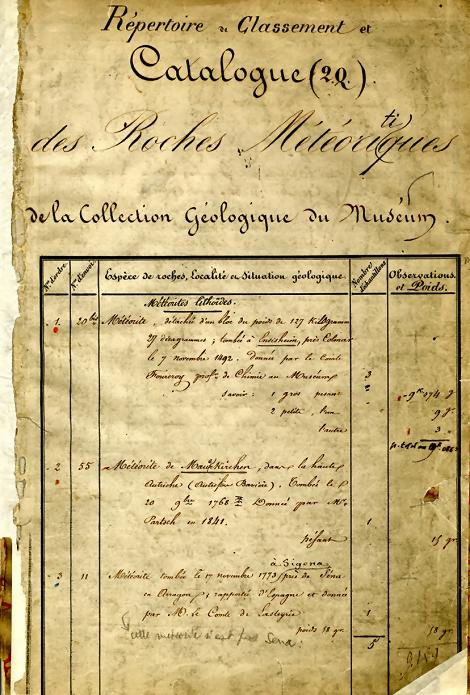 Répertoire de Classement et
Catalogue (2Q).
des Roches Météoritiques
de la Collection Géologique du Muséum.
N.º d'ordre
Espèce de roches, Localité et Situation géologique.
Nombre d'échantillons
Observations et Poids.
Météorites lithoïdes.
1. Météorite, détachée d'un bloc du poids de 127 Kilogrammes
tombée à Ensisheim, près Colmar
le 7 novembre 1492. Donnée par le Comte
Fourcroy prof. de Chimie au Muséum 3
Savoir: 1 gros pesant
2 petits, l'un 9 g.
l'autre 3
2 55 Météorite de Mauerkirchen, dans la haute
Autriche (Bavière). Tombée le
20 9bre 1768. Donnée par Mr.
Partsch en 1841. 1
pesant 15 gr.
à Sigena
3 11 Météorite tombée le 17 novembre 1773 près de Sena
en Aragon; rapportée d'Espagne et donnée
par M. le Comte de Lasteyrie 1
poids 18 gr. 18 gr.
cette météorite n'est pas Sena.
5